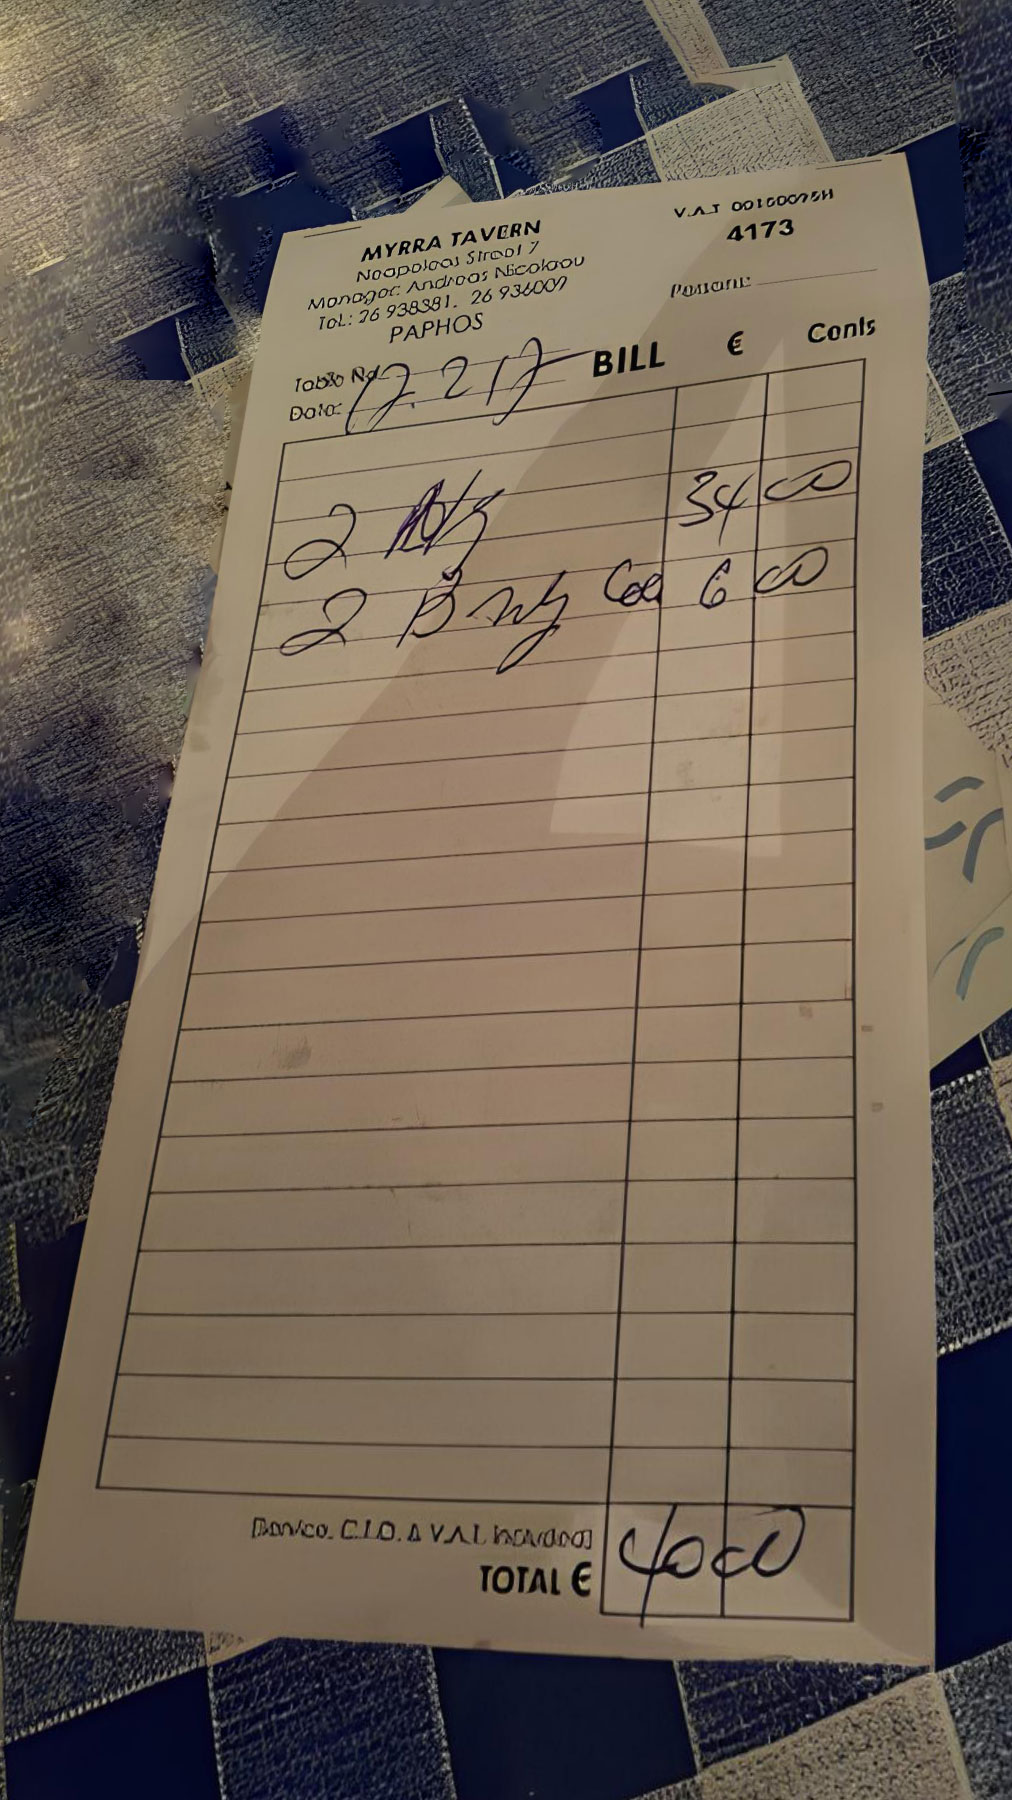 MYRRA TAVERN
Neapoleos Street 7
Manager: Andreas Nicolaou
Tel.: 26 938381. 26 936009
PAPHOS
V.A.T 00160096H
4173
Persons:
Table No
Date: 17.2 17
BILL € Cents
2 34 00
2 6 00
Service. C.T.O. & V.A.T. Included
TOTAL € 40 00